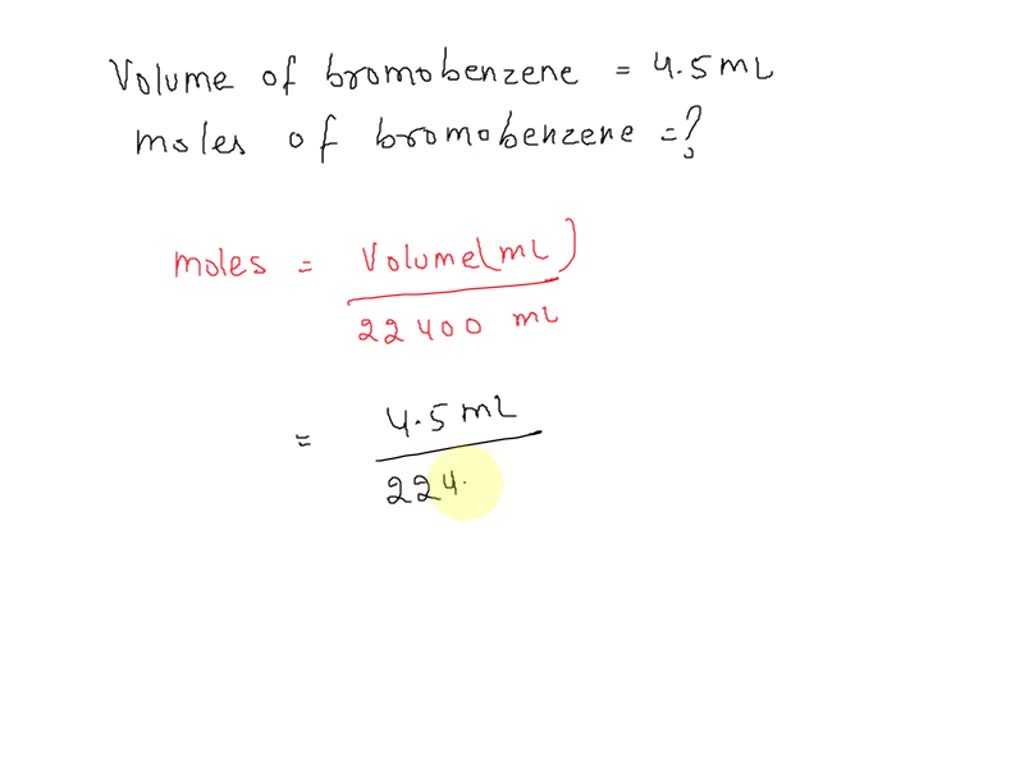 Volume of bromobenzene = 4.5 mL
moles of bromobenzene = ?
moles = Volume(mL)
22400 mL
= 4.5 mL
224.